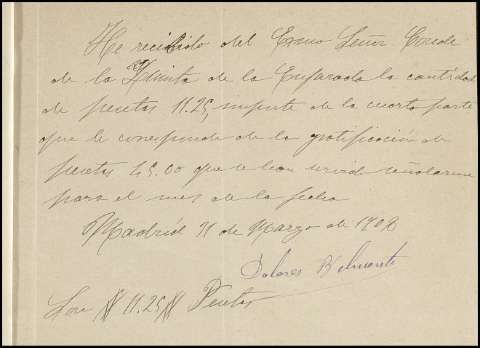 He recibido del Exmo Señor Conde
de la Quinta de la Enjarada la cantidad
de pesetas 11.25, importe de la cuarta parte
que le corresponde de la gratificación de
pesetas 45.00 que se han servido señalarme
para el mes de la fecha
Madrid 31 de Marzo de 1908
Dolores Belmonte
Son # 11.25 # Pesetas